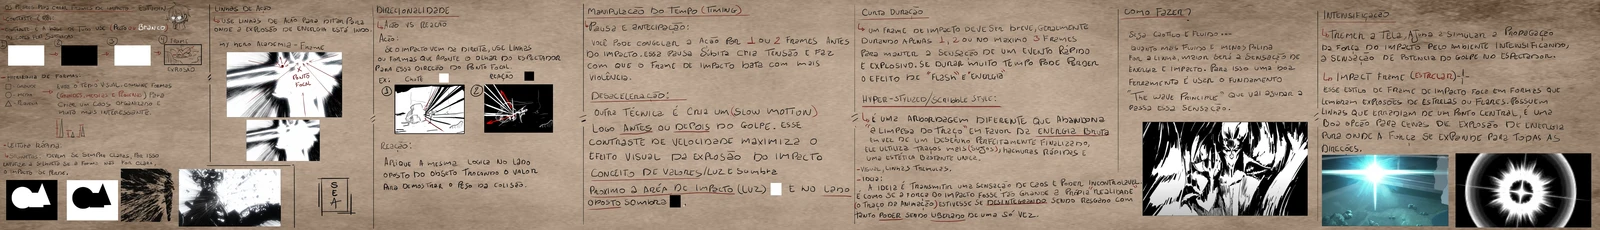 BRANCO
1 FRAME
EXPLOSÃO
HIERARQUIA DE FORMAS:
LEITURA RÁPIDA
LINHAS DE AÇÃO
USE LINHAS DE AÇÃO PARA DITAR PARA
ONDE A EXPLOSÃO DE ENERGIA ESTÁ INDO.
MY HERO ACADEMIA - FRAME
PONTO
FOCAL
SELA
DIRECIONALIDADE
AÇÃO VS REAÇÃO
AÇÃO:
SE O IMPACTO VEM DA DIREITA, USE LINHAS
OU FORMAS QUE APONTE O OLHAR DO ESPECTADOR
PARA ESSA DIREÇÃO DO PONTO FOCAL.
EX:
REAÇÃO
1
2
REAÇÃO:
APLIQUE A MESMA LÓGICA NO LADO
OPOSTO DO OBJETO TROCANDO O VALOR
PARA DEMOSTRAR O PESO DA COLISÃO.
MANIPULAÇÃO DO TEMPO (TIMING)
PAUSA E ANTECIPAÇÃO:
VOCÊ PODE CONGELAR A AÇÃO POR 1 OU 2 FRAMES ANTES
DO IMPACTO. ESSA PAUSA SÚBITA CRIA TENSÃO E FAZ
COM QUE O FRAME DE IMPACTO BATA COM MAIS
VIOLÊNCIA.
DESACELERAÇÃO:
OUTRA TÉCNICA É CRIA UM (SLOW MOTTION)
LOGO ANTES OU DEPOIS DO GOLPE. ESSE
CONTRASTE DE VELOCIDADE MAXIMIZA O
EFEITO VISUAL DA EXPLOSÃO DO IMPACTO
CONCEITO DE VALORES/LUZ E SOMBRA
PRÓXIMO A ÁREA DE IMPACTO (LUZ) E NO LADO
OPOSTO SOMBRA
CURTA DURAÇÃO
UM FRAME DE IMPACTO DEVE SER BREVE, GERALMENTE
DURANDO APENAS 1, 2 OU NO MÁXIMO 3 FRAMES
PARA MANTER A SENSAÇÃO DE UM EVENTO RÁPIDO
E EXPLOSIVO. SE DURAR MUITO TEMPO PODE PERDER
O EFEITO DE "FLASH" E "ENERGIA"
HYPER-STYLIZED/SCRIBBLE STYLE:
É UMA ABORDAGEM DIFERENTE QUE ABANDONA
A LIMPESA DO TRAÇO EM FAVOR DA ENERGIA BRUTA
EM VEZ DE UM DESENHO PERFEITAMENTE FINALIZADO,
ELE UTILIZA TRAÇOS MAIS (SUJOS), HACHURAS RÁPIDAS E
UMA ESTÉTICA BASTANTE ÚNICA.
-VISUAL: LINHAS TREMULAS.
-IDEIA:
A IDEIA É TRANSMITIR UMA SENSAÇÃO DE CAOS E PODER INCONTROLÁVEL
É COMO SE A FORÇA DO IMPACTO FOSSE TÃO GRANDE A PRÓPRIA REALIDADE
(O TRAÇO DA ANIMAÇÃO) ESTIVESSE SE DESINTEGRANDO SENDO RASGADO COM
TANTO PODER SENDO LIBERADO DE UMA SÓ VEZ.
COMO FAZER?
SEJA CAÓTICO E FLUIDO...
QUANTO MAIS FLUIDO E MENOS RÍGIDA
FOR A LINHA, MAIOR SERÁ A SENSAÇÃO DE
ENERGIA E IMPACTO. PARA ISSO UMA BOA
FERRAMENTA É USAR O FUNDAMENTO
"THE WAVE PRINCIPLE" QUE VAI AJUDAR A
PASSA ESSA SENSAÇÃO.
INTENSIFICAÇÃO
TREMER A TELA, AJUDA A SIMULAR A PROPAGAÇÃO
DA FORÇA DO IMPACTO PELO AMBIENTE INTENSIFICANDO,
A SENSAÇÃO DE POTENCIA DO GOLPE NO ESPECTADOR.
IMPACT FRAME (ESTRELAR)
ESSE ESTILO DE FRAME DE IMPACTO FOCA EM FORMAS QUE
LEMBRAM EXPLOSÕES DE ESTRELAS OU FLARES. POSSUEM
LINHAS QUE IRRADIAM DE UM PONTO CENTRAL, É UMA
BOA OPÇÃO PARA CENAS DE EXPLOSÃO DE ENERGIA
PURA ONDE A FORÇA SE EXPANDE PARA TODAS AS
DIREÇÕES.